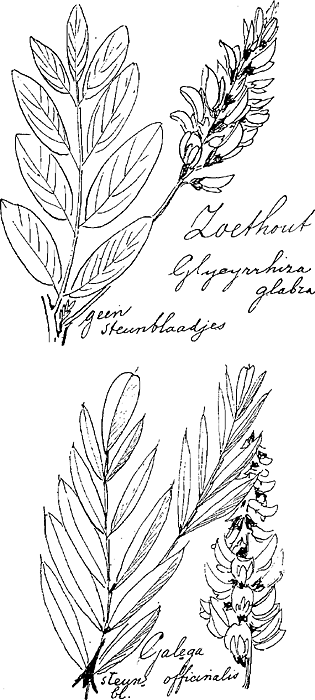 Zoethout
Glycyrrhiza
glabra
geen
steunblaadjes
Galega
steun officinalis
bl.